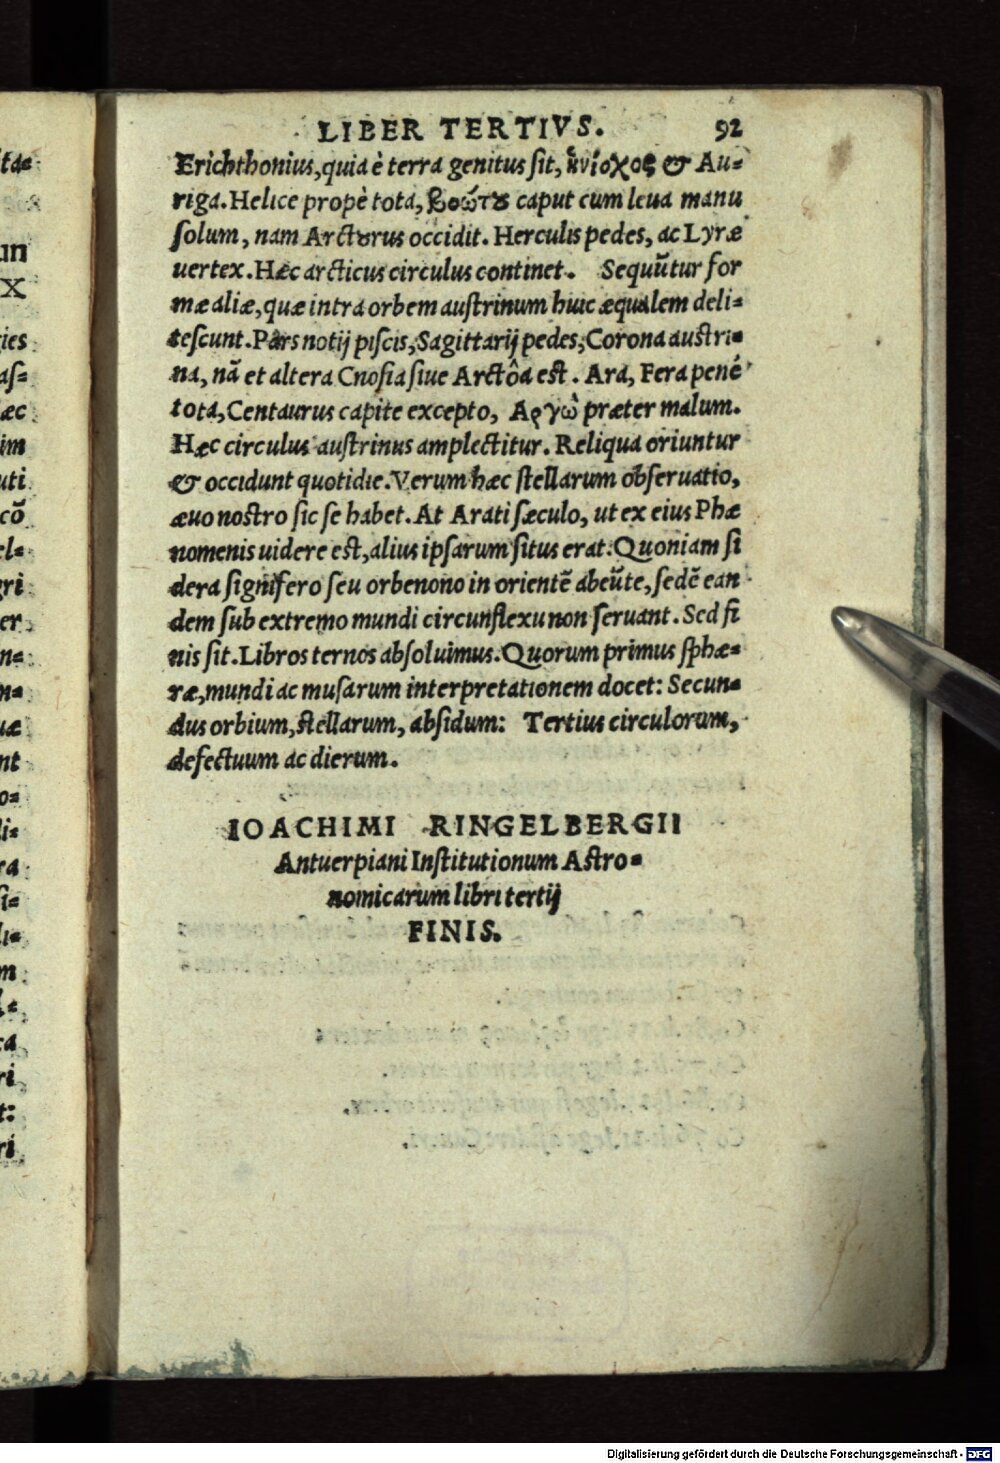 LIBER TERTIVS. 92
Erichthonius, quia è terra genitus sit, ἡνίοχος & Au-
riga. Helice propè tota, βοώτȣ caput cum leua manu
solum, nam Arctȣrus occidit. Herculis pedes, ac Lyræ
uertex. Hæc arcticus circulus continet. Sequūtur for
mæ aliæ, quæ intra orbem austrinum huic æqualem deli-
tescunt. Pars notij piscis, Sagittarij pedes, Corona austri-
na, nā et altera Cnosia siue Arctôa est. Ara, Fera penè
tota, Centaurus capite excepto, Αργὼ præter malum.
Hæc circulus austrinus amplectitur. Reliqua oriuntur
& occidunt quotidie. Verum hæc stellarum obseruatio,
æuo nostro sic se habet. At Arati sæculo, ut ex eius Phæ
nomenis uidere est, alius ipsarum situs erat. Quoniam si
dera signifero seu orbe nono in orientē abeūte, sedē ean
dem sub extremo mundi circunflexu non seruant. Sed fi
nis sit. Libros ternos absoluimus. Quorum primus sphæ-
ræ, mundi ac musarum interpretationem docet: Secun-
dus orbium, stellarum, absidum: Tertius circulorum,
defectuum ac dierum.
IOACHIMI RINGELBERGII
Antuerpiani Institutionum Astro-
nomicarum libri tertij
FINIS.
Digitalisierung gefördert durch die Deutsche Forschungsgemeinschaft - DFG